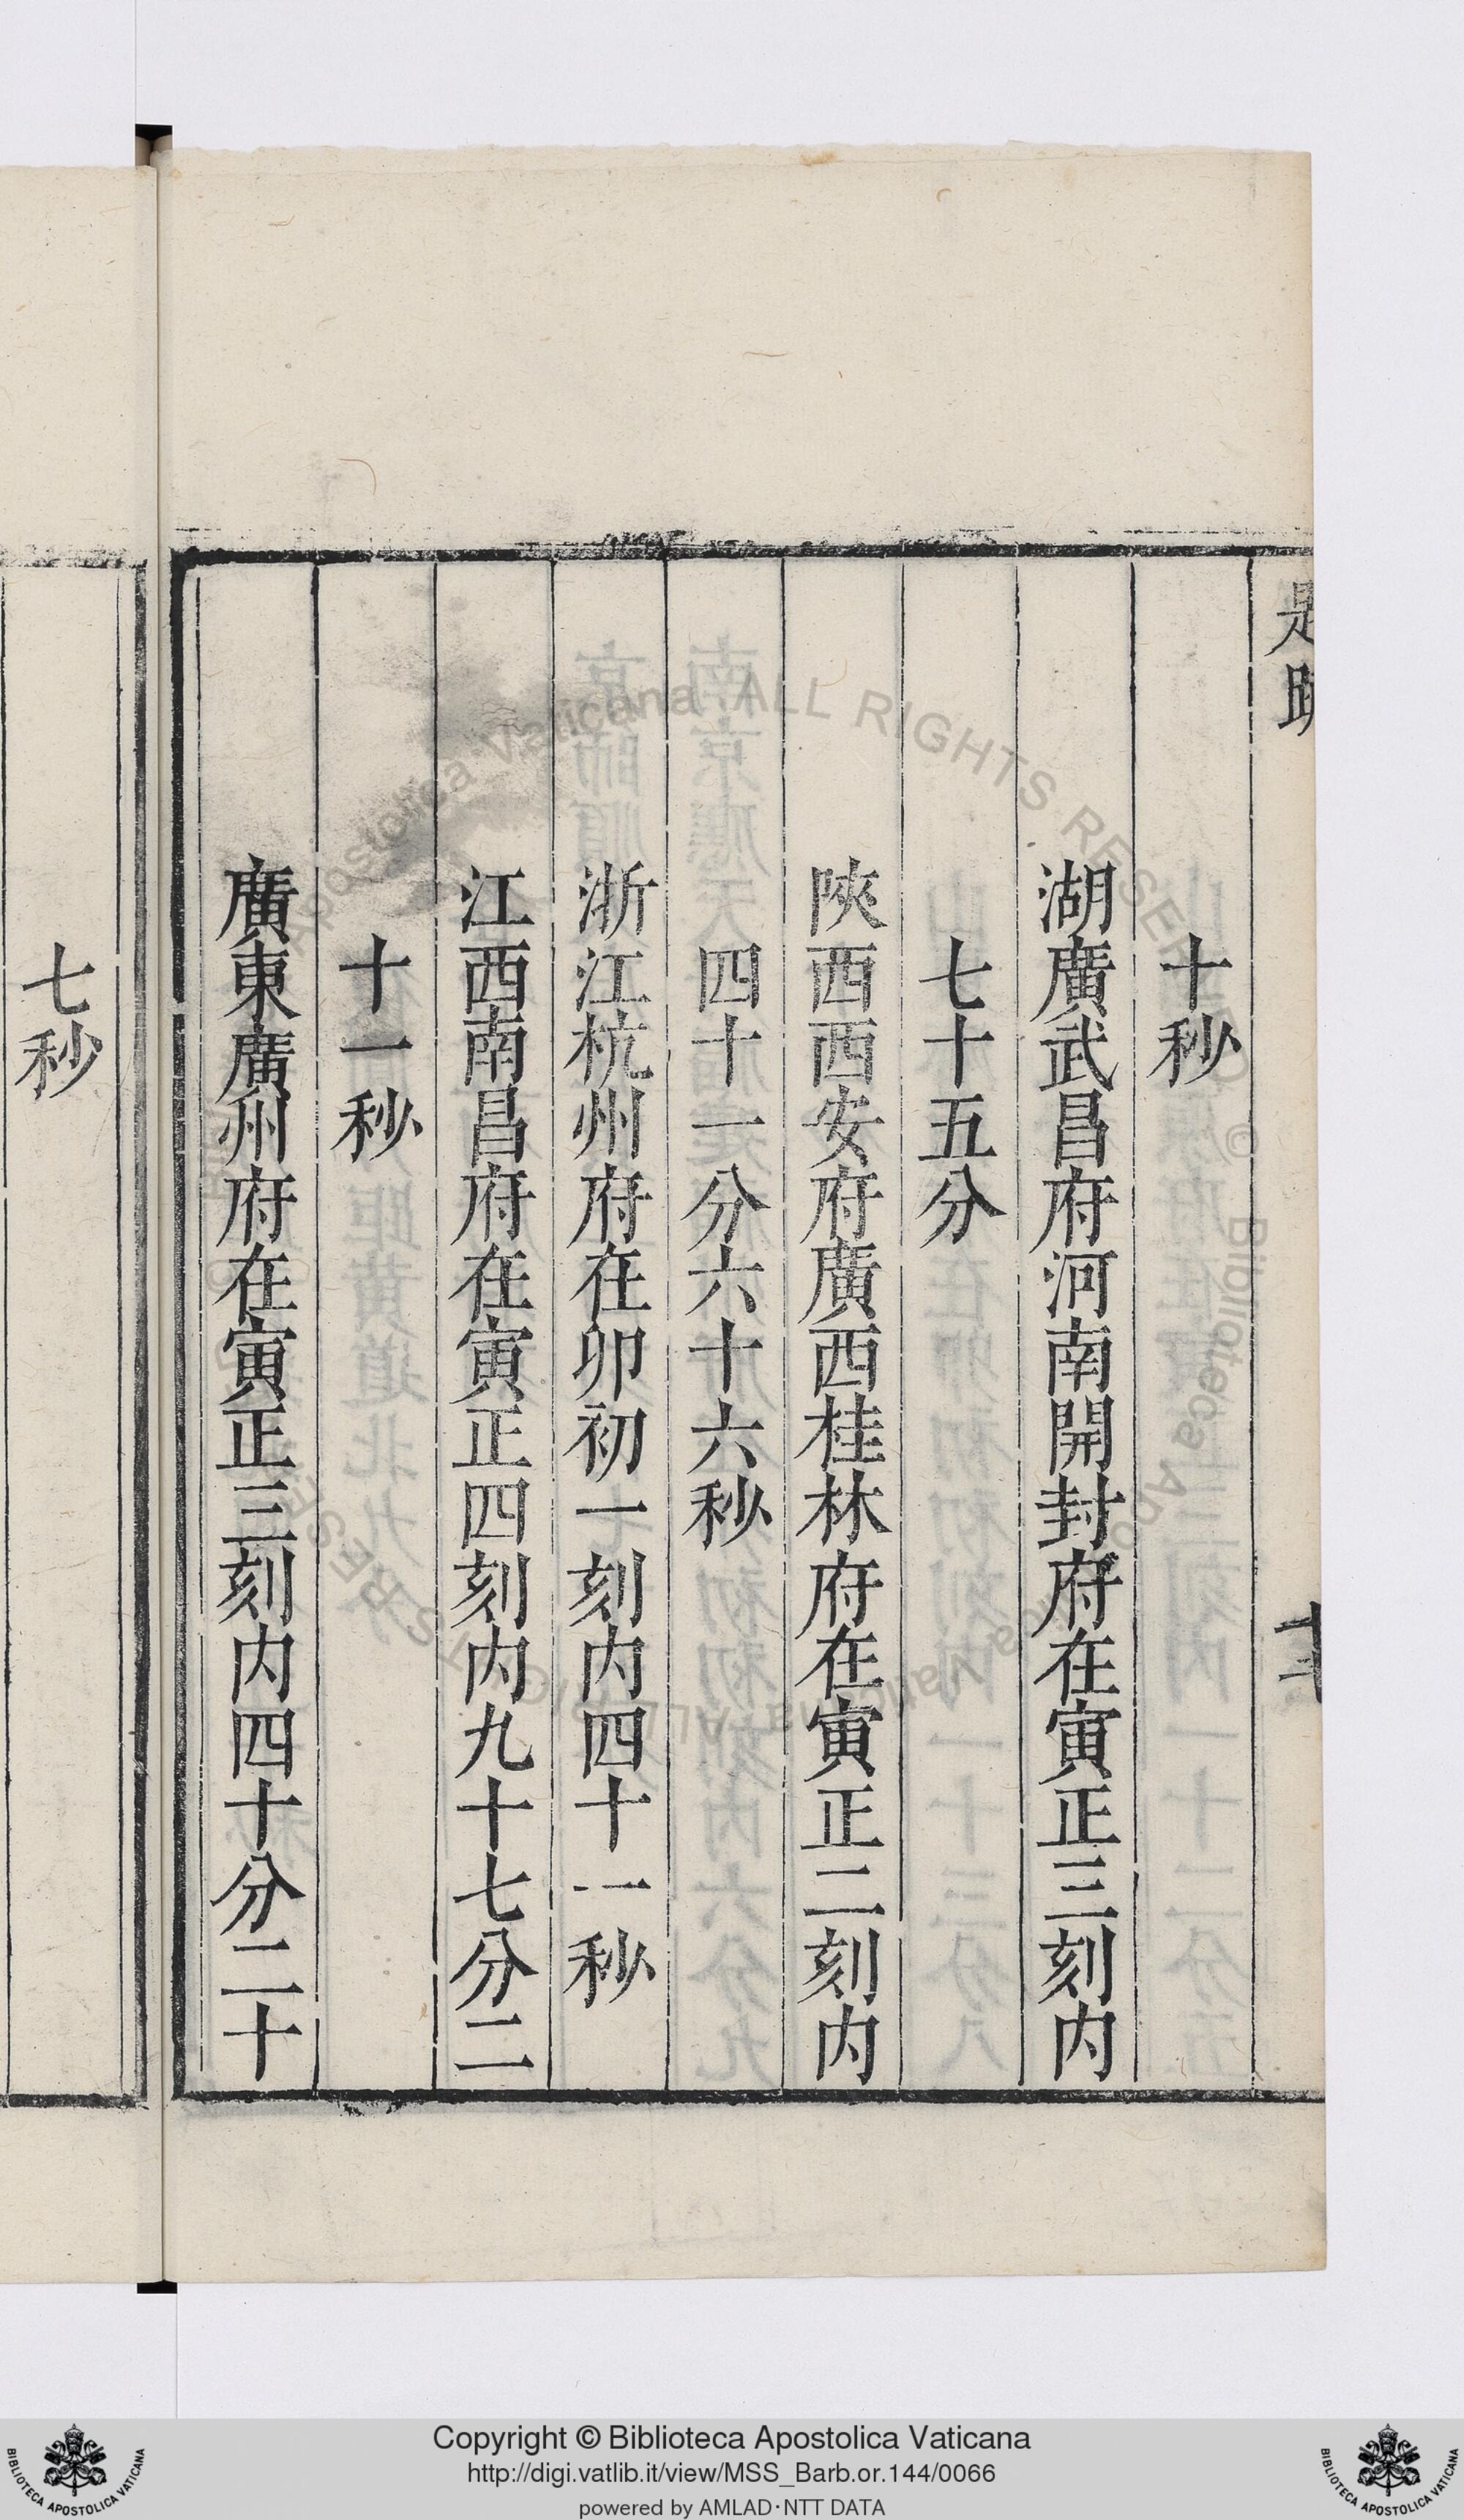 十秒
湖廣武昌府河南開封府在寅正三刻内
七十五分
陜西西安府廣西桂林府在寅正二刻内
四十一分六十六秒
浙江杭州府在卯初一刻内四十一秒
江西南昌府在寅正四刻内九十七分二
十一秒
廣東廣州府在寅正三刻内四十分二十
七秒
Copyright © Biblioteca Apostolica Vaticana
http://digi.vatlib.it/view/MSS_Barb.or.144/0066
powered by AMLAD·NTT DATA
BIBLIOTECA APOSTOLICA VATICANA
BIBLIOTECA APOSTOLICA VATICANA